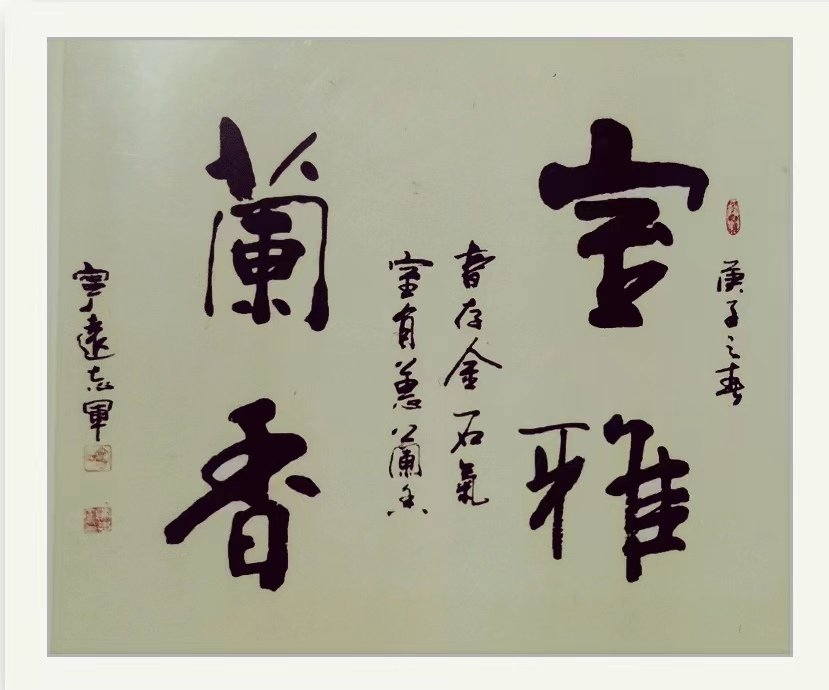 庚子之春
室雅
書存金石氣
室有蕙蘭香
蘭香
寧遠志軍